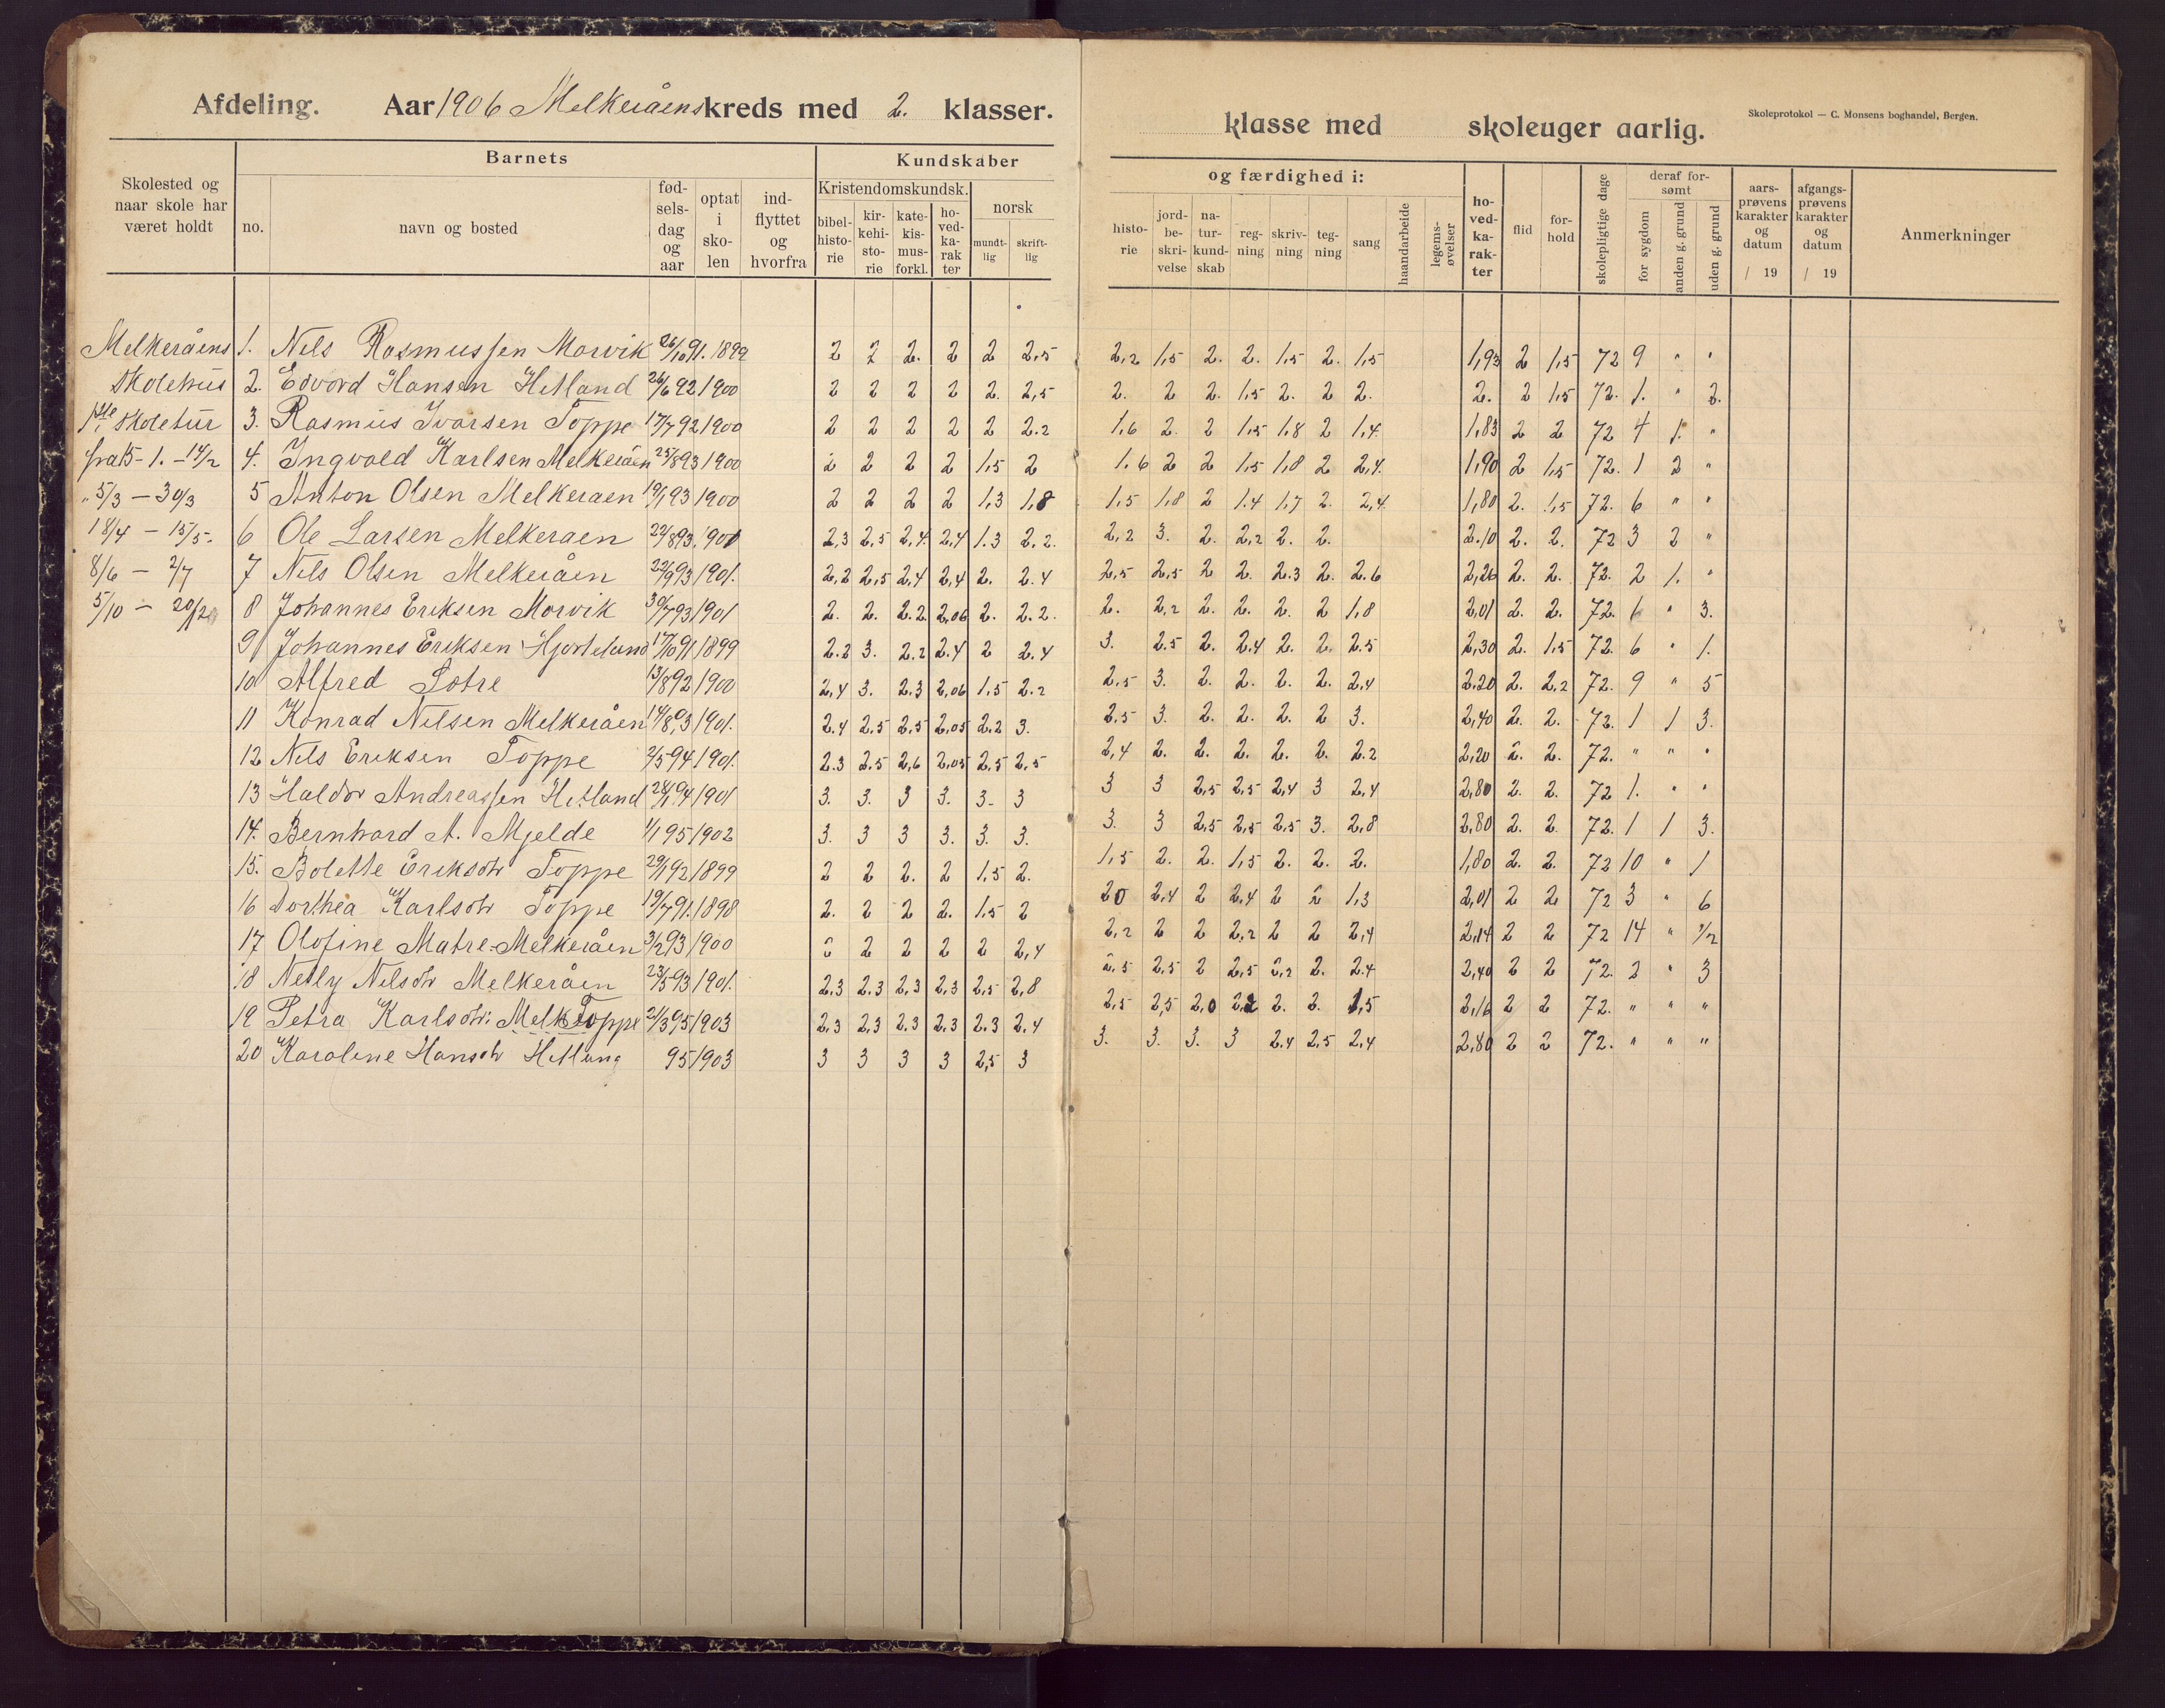 Afdeling. Aar 1906 Melkeråens kreds med 2. klasser.
klasse med skoleuger aarlig.
Skoleprotokol — C. Monsens boghandel, Bergen.
Skolested og naar skole har været holdt
Barnets
no.
navn og bosted
fød-sels-dag og aar
optat i sko-len
ind-flyttet og hvorfra
Kundskaber
Kristendomskundsk.
bibel-histo-rie
kir-kehi-sto-rie
kate-kis-mus-forkl.
ho-ved-ka-rak ter
norsk
mundt-lig
skrift-lig
og færdighed i:
histo-rie
jord-be-skri-velse
na-tur-kund-skab
reg-ning
skriv-ning
teg-ning
sang
haandarbeide
legems-øvelser
ho-ved-ka-rak-ter
flid
for-hold
skolepligtige dage
deraf for-sømt
for sygdom
anden g. grund
uden g. grund
aars-prøvens karakter og datum / 19
afgangs-prøvens karakter og datum / 19
Anmerkninger
Melkeråens 1. Nils Rasmussen Morvik 26/10 91. 1899 2 2 2. 2 2 2,5 2,2 1,5 2. 2. 1,5 2. 1,5 1,93 2 1,5 72 9 " "
Skolehus 2. Edvard Hansen Hetland 26/6 92 1900 2 2 2 2 2. 2,5 2. 2 2. 1,5 2. 2 2. 2. 2 1,5 72. 1. " 2.
1ste skoletur 3. Rasmus Ivarsen Toppe 17/7 92 1900 2 2 2 2 2 2.2 1,6 2. 2 1,5 1,8 2 1,4 1,83 2 2 72 4 1. "
fra 15-1. - 14/2 4. Ingvald Karlsen Melkeråen 25/8 93 1900 2 2 2 2 1,5 2 1.6 2 2 1,5 1,8 2 2,4. 1,90 2 1,5 72. 1 2 "
" 5/3 - 30/3 5 Anton Olsen Melkeraen 19/1 93 1900 2 2 2 2 1,3 1,8 1,5 1,8 2 1.4 1,7 2. 2,4. 1,80 2. 1,5 72. 6 " "
18/4 - 15/5. 6 Ole Larsen Melkeraen 22/8 93. 1901 2,3 2,5 2,4. 2,4 1.3 2.2. 2,2 3. 2. 2,2 2. 2. 2.10 2. 2. 72 3 2 "
8/6 - 2/7 7 Nils Olsen Melkeråen 22/9 93 1901. 2,2 2,5 2,4 2,4 2. 2.4 2,5 2,5 2 2. 2.3 2. 2.6 2,26 2. 2. 72. 2 1. "
5/10 - 20/12 8 Johannes Eriksen Morvik 30/7 93 1901 2. 2. 2.2 2,06 2. 2.2. 2. 2,2 2. 2. 2. 2 1,8 2,01 2. 2. 72. 6 " 3.
9 Johannes Eriksen Hjorteland 17/10 91 1899 2.2 3. 2.2 2.4 2 2.4 3. 2.5 2. 2.4 2. 2. 2.5 2,30 2. 1.5 72. 6 " 1.
10 Alfred Sotre 13/8 92 1900 2,4 3. 2.3 2,06 1.5 2.2 2.5 3. 2. 2. 2. 2. 2,4 2.20 2. 2.2 72. 9 " 5
11 Konrad Nilsen Melkeråen 14/8 93 1901. 2.4 2,5 2,5 2,05 2.2 3. 2,5 3. 2. 2. 2. 2 3. 2,40 2. 2. 72. 1 1 3.
12 Nils Eriksen Toppe 2/5 94 1901. 2.3 2.5 2,6 2,05 2.5 2,5 2,4 2. 2. 2. 2. 2. 2.2 2,20 2. 2. 72. " " "
13 Haldor Andreassen Hetland 28/1 94 1901 3. 3. 3 3. 3- 3 3 3 2,5 2,5 2,4 3 2.4 2,80 2. 2. 72 1. " "
14. Bernhard A. Mjelde 1/1 95 1902 3. 3 3 3. 3. 3. 3. 3 2,5 2,5 2,5 3. 2,8 2,80 2. 2. 72. 1 1 3.
15. Bolette Eriksdtr Toppe 29/1 92 1899 2 2 2. 2 1,5 2. 1,5 2. 2. 1,5 2. 2. 2. 1,80 2. 2. 72 10 " 1
16 Dorthea Karlsdtr Toppe 19/7 91. 1898 2. 2 2 2. 1.5 2 20 2,4 2 2,4 2 2 1,3 2,01 2 2 72 3 " 6
17 Olofine Matre-Melkeråen 3/2 93 1900 2 2 2 2 2 2,4 2,2 2 2 2,2 2 2 2,4 2,14 2 2 72 14 " 1/2
18 Nelly Nilsdtr Melkeråen 23/5 93 1901. 2,3 2.3 2,3 2,3 2,5 2,8 2,5 2,5 2 2,5 2,2 2. 2.4 2,40 2 2 72. 2 " 3
19 Petra Karlsdtr: Melk Toppe 21/3 95 1903 2,3 2,3 2.3 2,3 2.3 2.4 2,5 2,5 2,0 2,2 2. 2. 1,5 2,16 2 2 72. " " "
20 Karoline Hansdtr Hetland 95 1903 3 3 3 3 2,5 3 3. 3. 3. 3 2.4 2,5 2,4 2,80 2 2 72. " " "